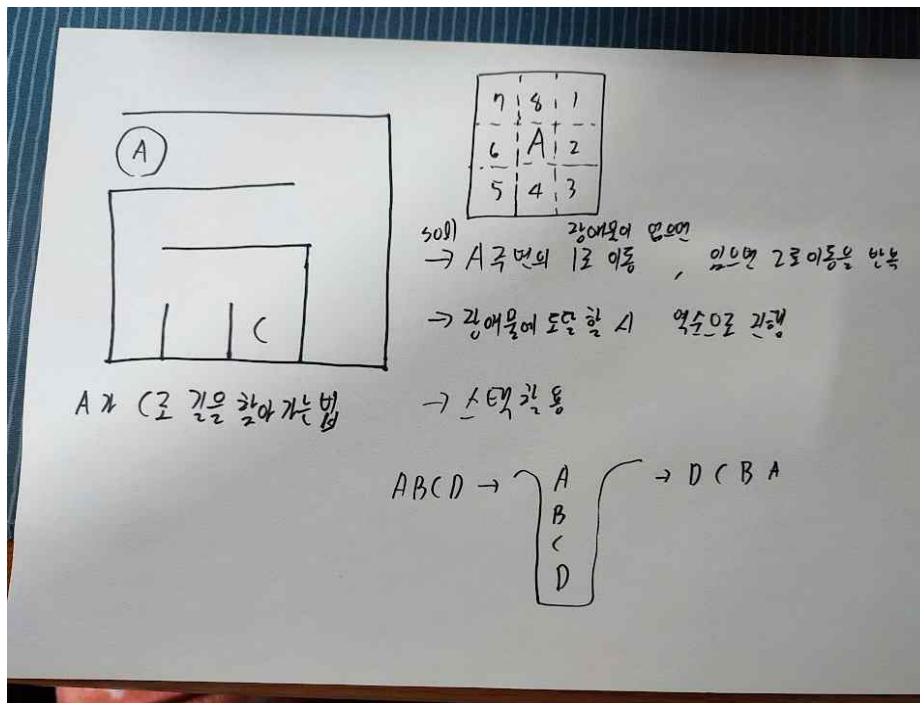 A
C
A가 C로 길을 찾아가는법
7 8 1
6 A 2
5 4 3
sol)
장애물이 없으면
→ A주변의 1로 이동 , 있으면 2로 이동을 반복
→ 장애물에 도달할 시 역순으로 진행
→ 스택활용
ABCD → A → DCBA
B
C
D